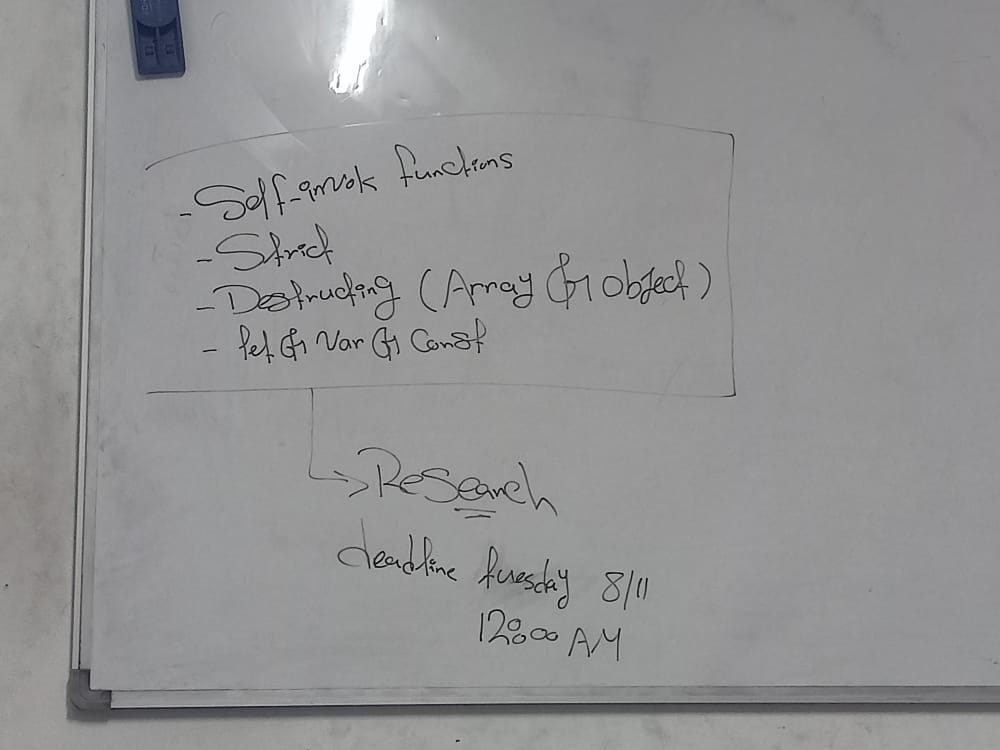 - Self-invok functions
- Strict
- Destructing (Array & object)
- let & Var & Const
Research
deadline tuesday 8/11
12:00 AM